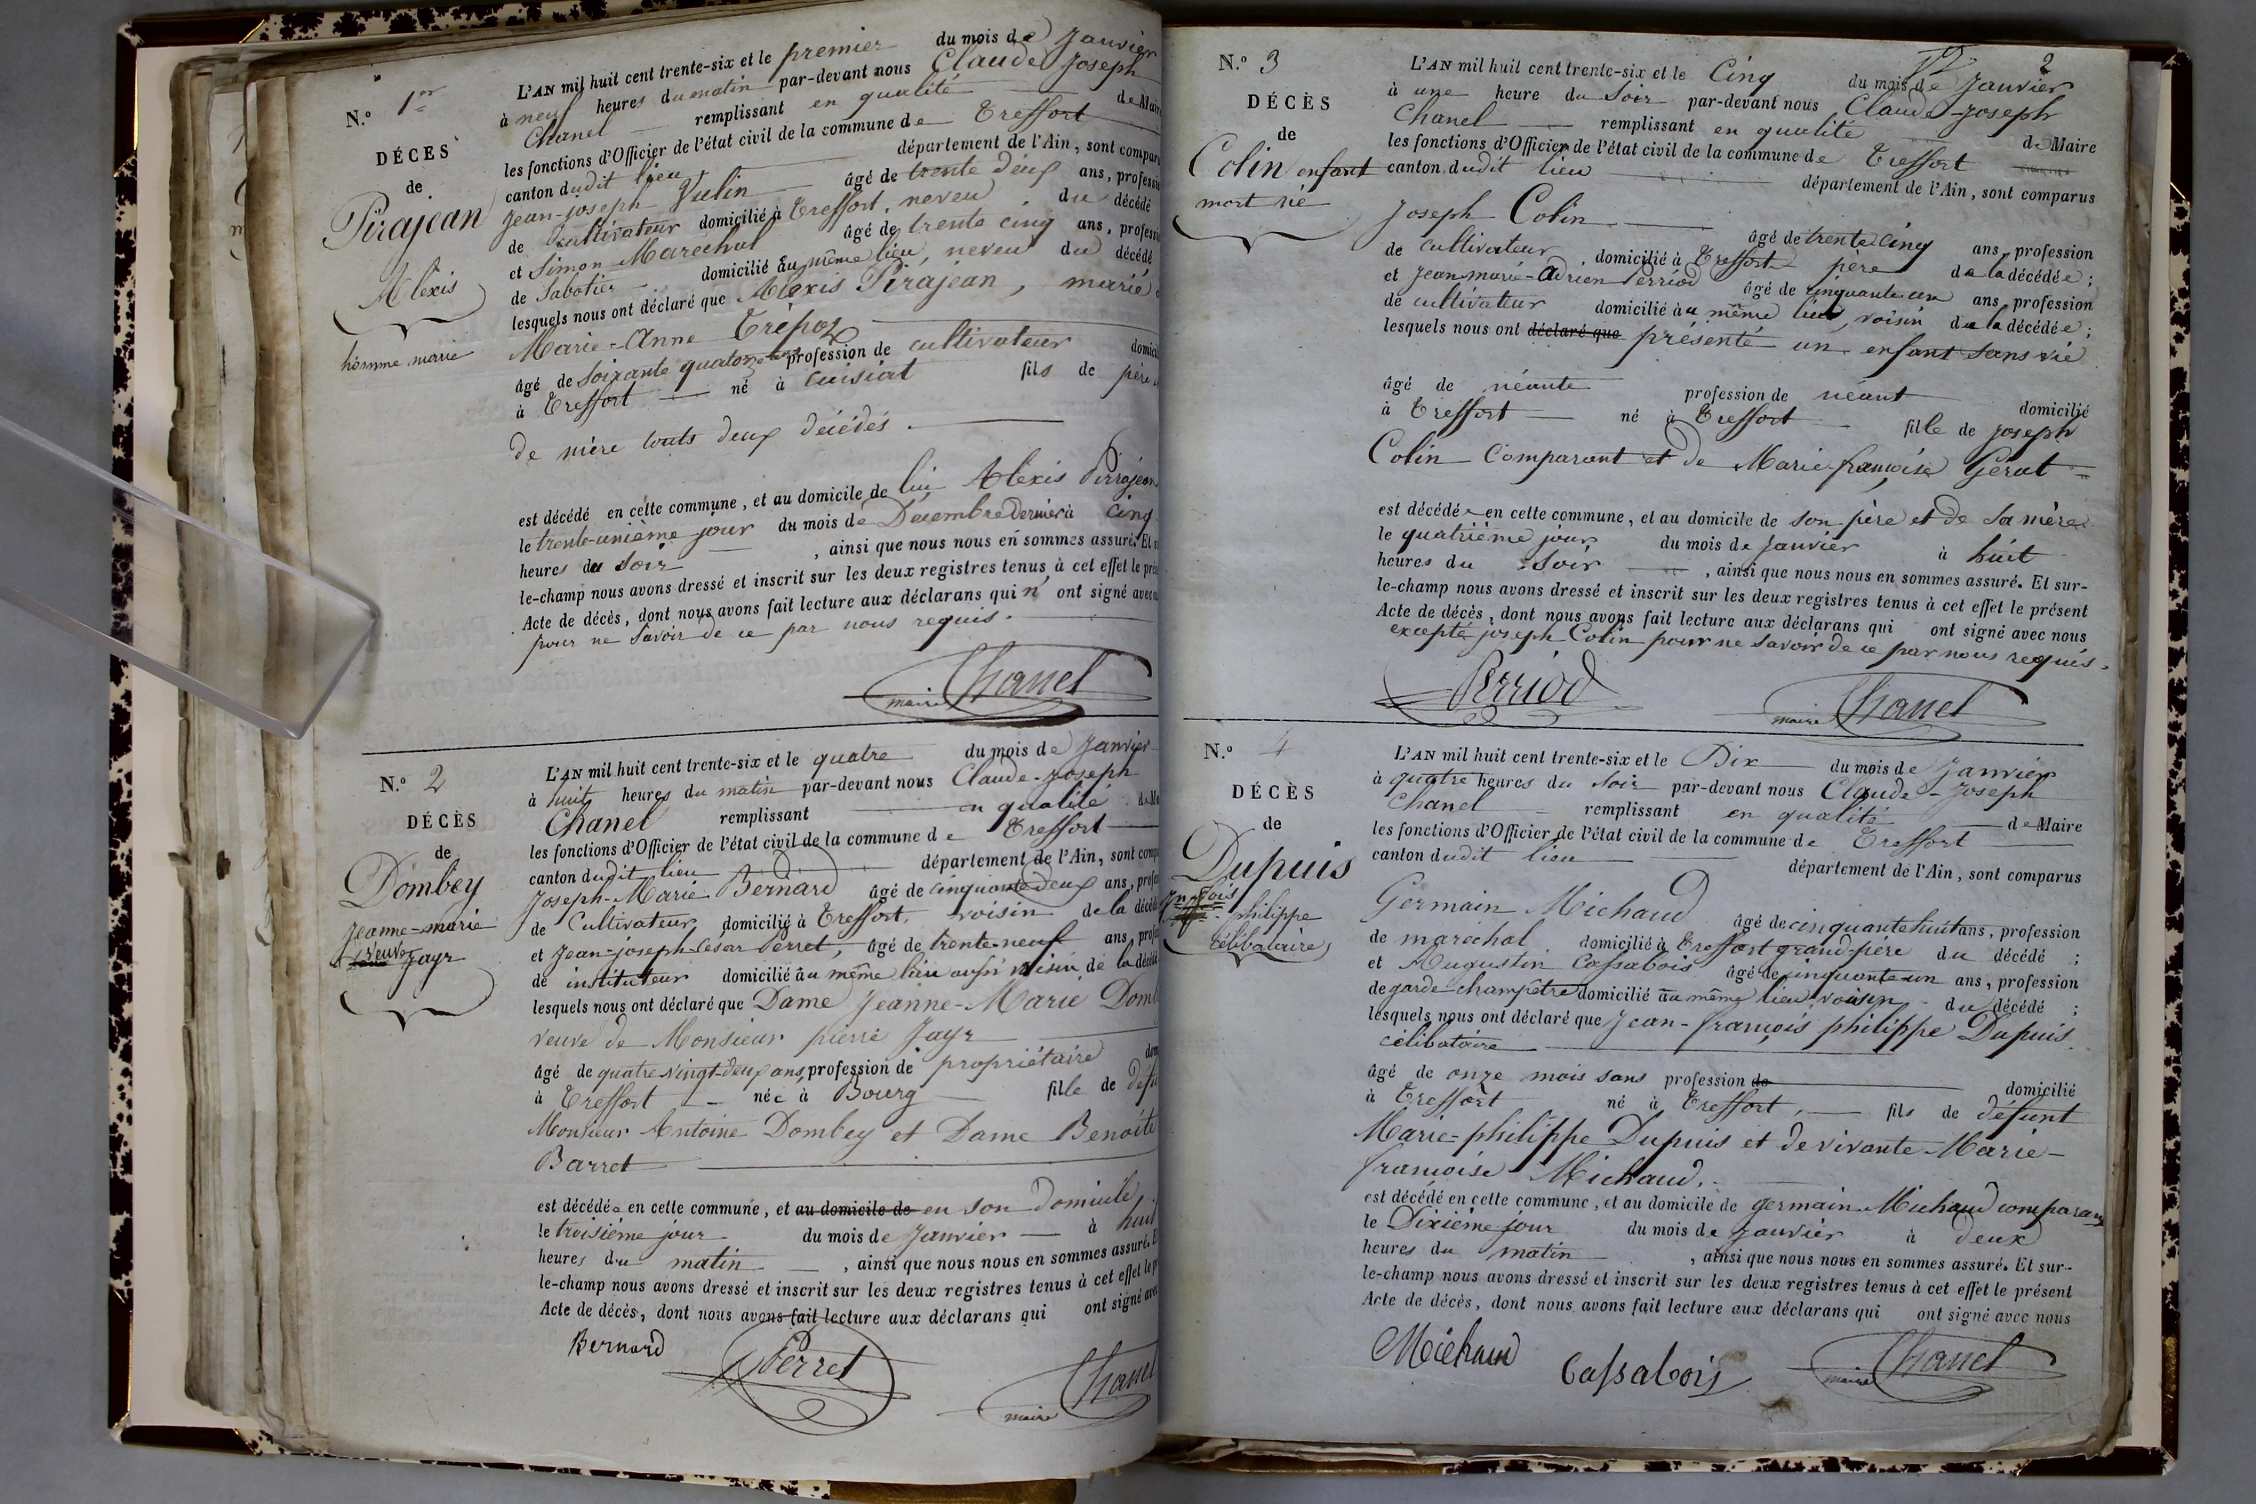 N.º 1er
DÉCÈS
de
Pirajean
Alexis
homme marié
L'AN mil huit cent trente-six et le premier du mois de Janvier
à neuf heures du matin par-devant nous Claude Joseph
Chanel remplissant en qualité de Maire
les fonctions d'Officier de l'état civil de la commune de Treffort
canton dudit lieu département de l'Ain, sont compar
Jean-joseph Vulin âgé de trente deux ans, professi
de Cultivateur domicilié à Treffort, neveu du décédé
et Simon Maréchal âgé de trente cinq ans, professi
de Sabotier domicilié au même lieu, neveu du décédé
lesquels nous ont déclaré que Alexis Pirajean, marié à
Marie-Anne Trépoz
âgé de soixante quatorze ans profession de cultivateur domici
à Treffort né à Cuisiat fils de père
de mère touts deux décédés.
est décédé en cette commune, et au domicile de lui Alexis Pirajean
le trente-unième jour du mois de Décembre dernier à cinq
heures du soir, ainsi que nous nous en sommes assuré. Et s
le-champ nous avons dressé et inscrit sur les deux registres tenus à cet effet le prés
Acte de décès, dont nous avons fait lecture aux déclarans qui n'ont signé avec n
pour ne savoir de ce par nous requis.
maire Chanel
N.º 2
DÉCÈS
de
Dombey
Jeanne-marie
veuve Jayr
L'AN mil huit cent trente-six et le quatre du mois de Janvier
à huit heures du matin par-devant nous Claude-Joseph
Chanel remplissant en qualité de Ma
les fonctions d'Officier de l'état civil de la commune de Treffort
canton dudit lieu département de l'Ain, sont comp
Joseph-Marie Bernard âgé de cinquante deux ans, profes
de Cultivateur domicilié à Treffort, voisin de la décéd
et Jean-joseph-César Perret, âgé de trente-neuf ans, profes
de instituteur domicilié au même lieu aussi voisin de la décéd
lesquels nous ont déclaré que Dame Jeanne-Marie Domb
veuve de Monsieur pierre Jayr
âgé de quatre-vingt-deux ans, profession de propriétaire dom
à Treffort née à Bourg fille de défu
Monsieur Antoine Dombey et Dame Benoîte
Barret
est décédée en cette commune, et au domicile de en son domicile
le troisième jour du mois de Janvier à huit
heures du matin, ainsi que nous nous en sommes assuré. E
le-champ nous avons dressé et inscrit sur les deux registres tenus à cet effet le pr
Acte de décès, dont nous avons fait lecture aux déclarans qui ont signé avec
Bernard Perret maire Chanel
2
N.º 3
DÉCÈS
de
Colin enfant
mort né
L'AN mil huit cent trente-six et le Cinq du mois de Janvier
à une heure du Soir par-devant nous Claude-Joseph
Chanel remplissant en qualité de Maire
les fonctions d'Officier de l'état civil de la commune de Treffort
canton dudit lieu département de l'Ain, sont comparus
Joseph Colin âgé de trente cinq ans, profession
de cultivateur, domicilié à Treffort père de la décédée;
et Jean marie-Adrien Perriod âgé de cinquante un ans, profession
de cultivateur domicilié au même lieu, voisin de la décédée;
lesquels nous ont déclaré que présenté un enfant sans vie
âgé de néante profession de néant domicilié
à Treffort né à Treffort fille de Joseph
Colin Comparant et de Marie françoise Gérat
est décédée en cette commune, et au domicile de son père et de sa mère
le quatrième jour du mois de Janvier à huit
heures du Soir, ainsi que nous nous en sommes assuré. Et sur-
le-champ nous avons dressé et inscrit sur les deux registres tenus à cet effet le présent
Acte de décès, dont nous avons fait lecture aux déclarans qui ont signé avec nous
excepté joseph Colin pour ne savoir de ce par nous requis.
Perriod maire Chanel
N.º 4
DÉCÈS
de
Dupuis
philippe
célibataire
L'AN mil huit cent trente-six et le Dix du mois de Janvier
à quatre heures du Soir par-devant nous Claude-Joseph
Chanel remplissant en qualité de Maire
les fonctions d'Officier de l'état civil de la commune de Treffort
canton dudit lieu département de l'Ain, sont comparus
Germain Michaud âgé de cinquante huit ans, profession
de maréchal domicilié à Treffort grand-père du décédé;
et Augustin Cassabois âgé de cinquante-un ans, profession
de garde champêtre domicilié au même lieu, voisin du décédé;
lesquels nous ont déclaré que Jean-françois philippe Dupuis
célibataire
âgé de onze mois sans profession de domicilié
à Treffort né à Treffort, fils de défunt
Marie-philippe Dupuis et de vivante Marie-
françoise Michaud.
est décédé en cette commune, et au domicile de germain Michaud comparant
le Dixième jour du mois de Janvier à deux
heures du matin, ainsi que nous nous en sommes assuré. Et sur-
le-champ nous avons dressé et inscrit sur les deux registres tenus à cet effet le présent
Acte de décès, dont nous avons fait lecture aux déclarans qui ont signé avec nous
Michaud Cassabois maire Chanel